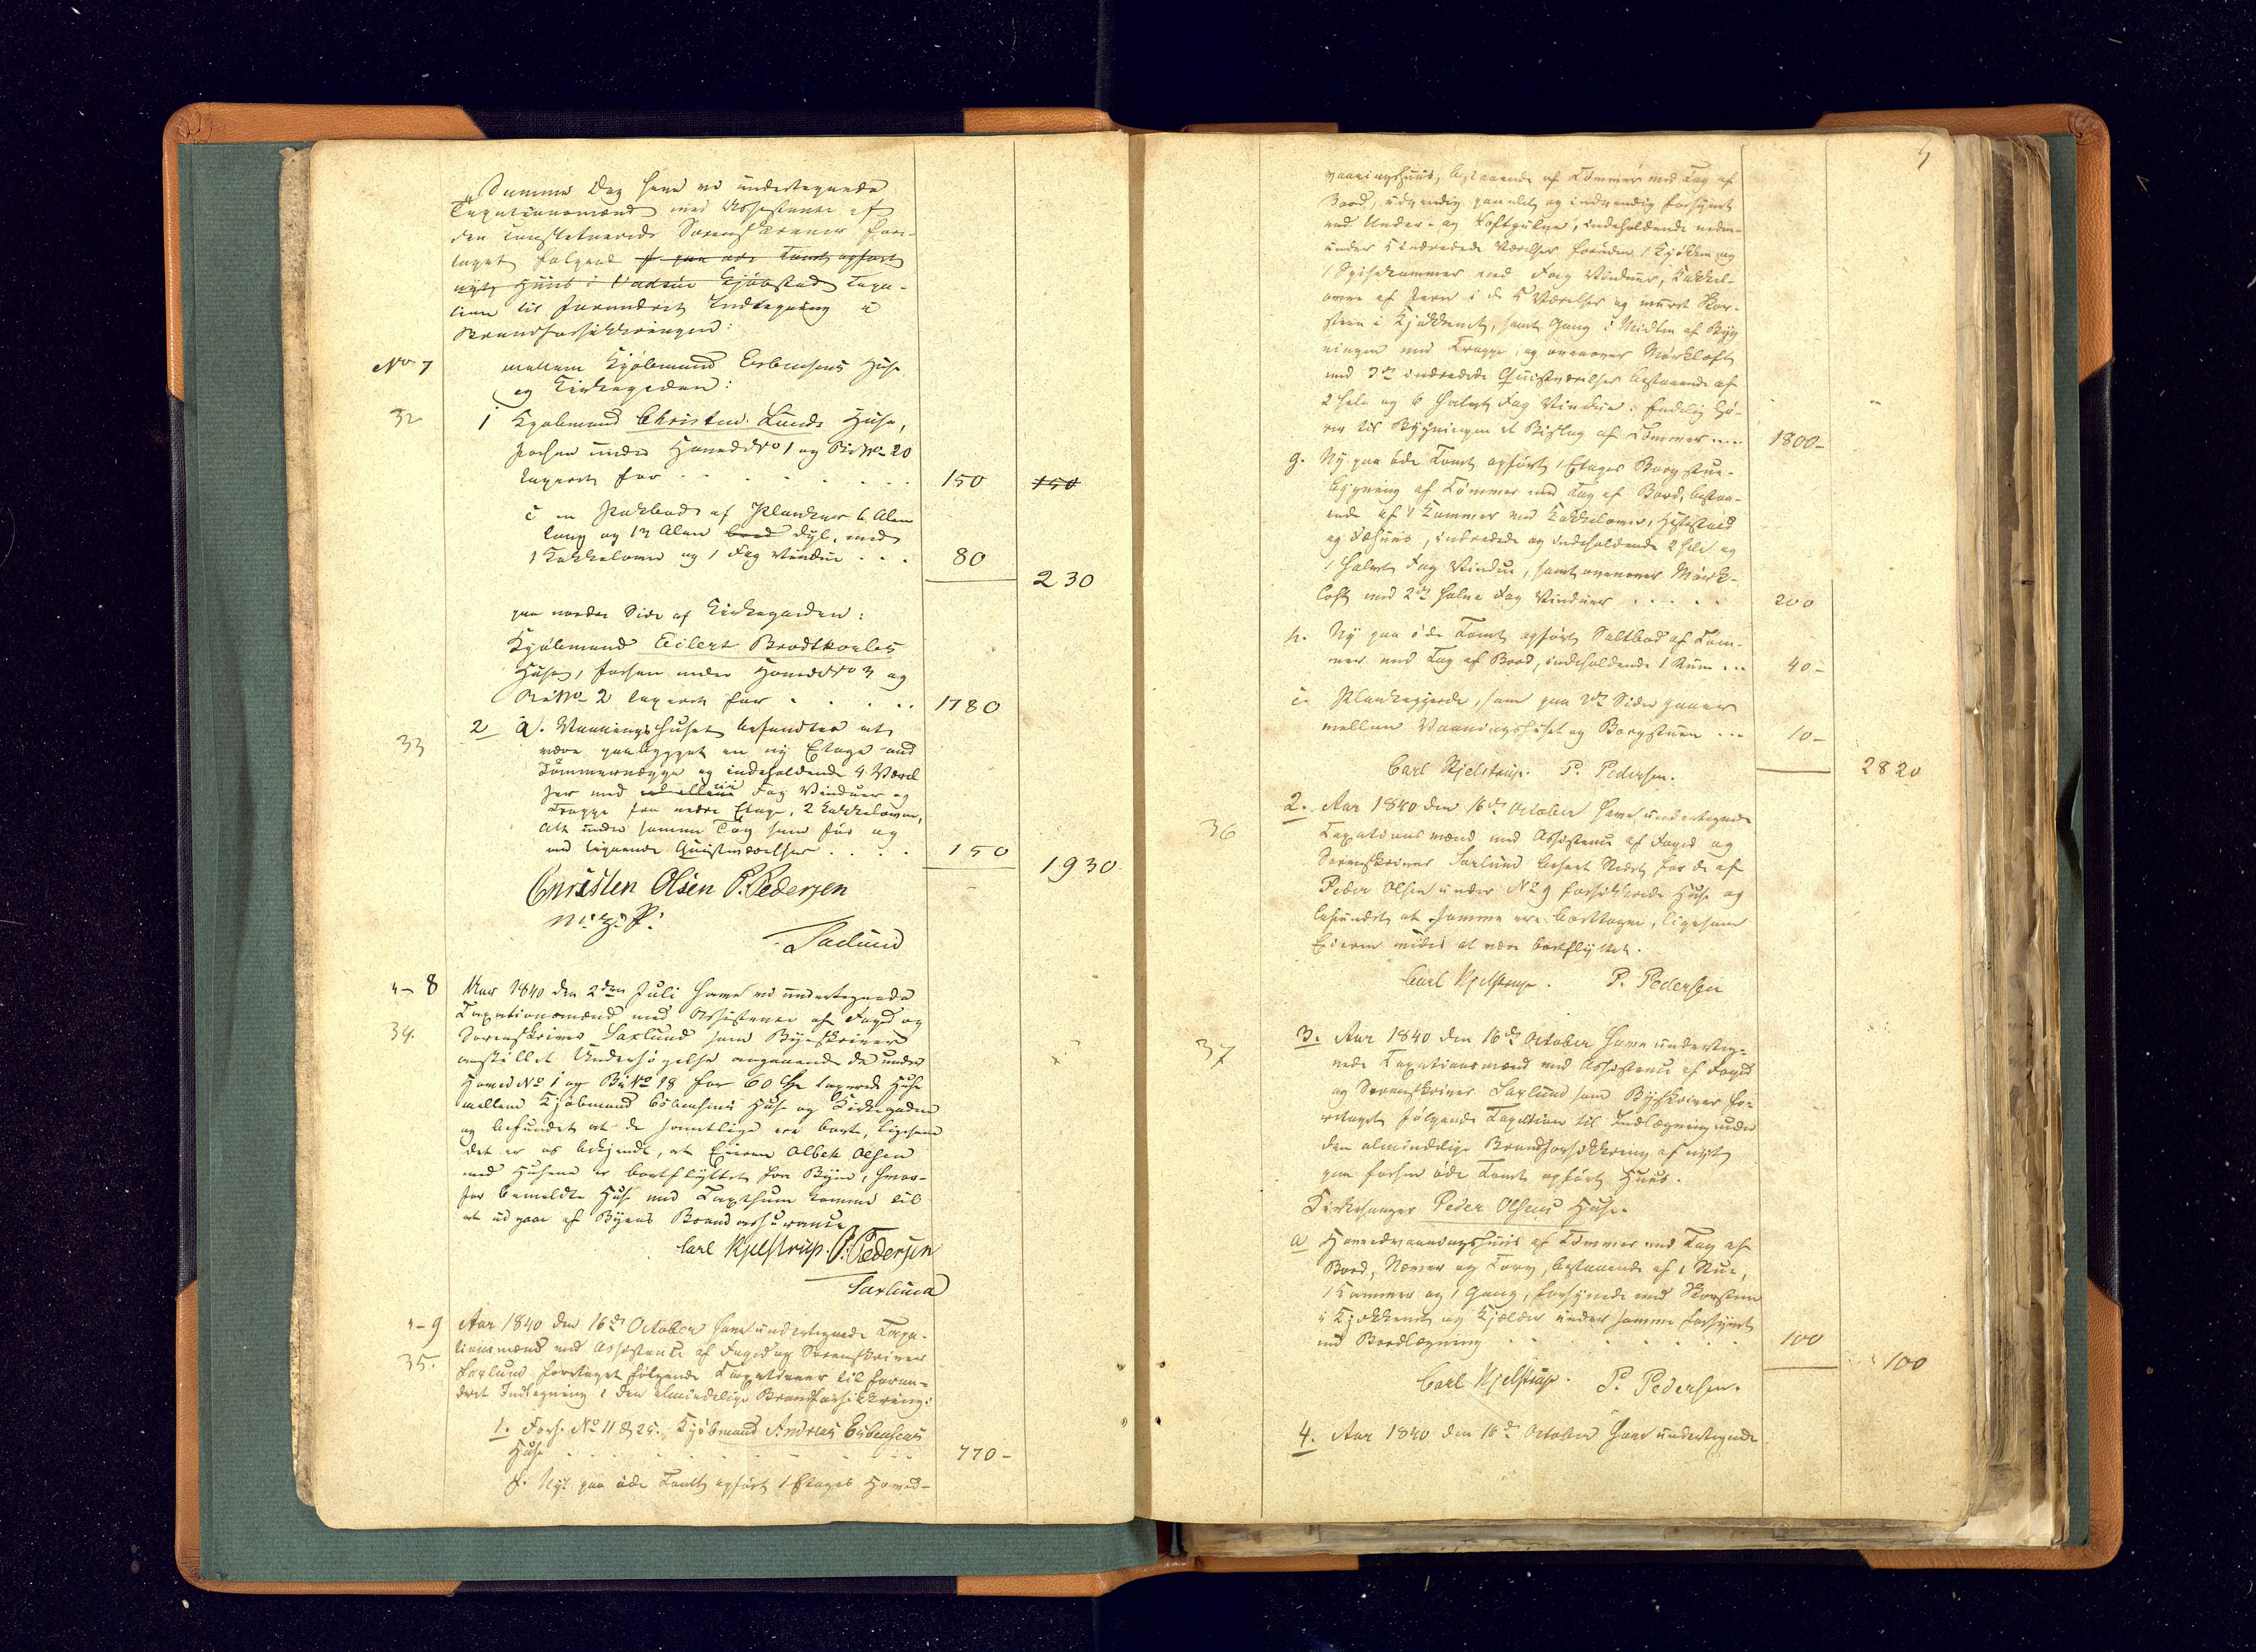 Samme Dag have vi undertegnede
Taxationsmænd med Assistence af
den constituerede Sorenskriver fore-
taget følgende f. paa øde Tomt opført
nyt Huus i Vadsøe Kjøbstad Taxa-
tion til forandret Indtegning i
Brandforsikkringen:
No 7 mellem Kjøbmand Esbensens Huse
og Kirkegaden:
32 1 Kjøbmand Christen Lunds Huse,
forhen under Hoved No 1 og Bi No 20
taxeret for . . . 150 150
i en Pakbod af Planker 6 Alen
lang og 12 Alen bred dyb, med
1 Kakkelovn og 1 Fag Vindue . . . 80
230
paa nordre Side af Kirkegaden:
Kjøbmand Eilert Brodtkorbes
Huse, forhen under Hoved No 3 og
Bi No 2 taxeret for . . . 1780
33 2 a. Vaaningshuset befandtes at
være paabygget en ny Etage med
Tømmervægge og indeholdende 4 Værel
ser med Fag Vinduer og
Trappe fra nedre Etage, 2 Kakkelovne,
Alt under samme Tag som før og
med lignende Qvistværelser . . . 150
1930
Christen Olsen P. Pedersen
m. p. P.
Saxlund
"- 8 Aar 1840 den 2den Juli have vi undertegnede
Taxationsmænd med Assistence af Foged og
34. Sorenskriver Saxlund som Byeskriver
anstillet Undersøgelse angaaende de under
Hoved No 1 og Bi No 18 for 60 Spd taxerede Huse
mellem Kjøbmand Esbensens Huse og Kirkegaden
og befundet at de samtlige ere borte, ligesom
det er os bekjendt, at Eieren Albek Olsen
med Husene er bortflyttet fra Byen, hvor-
for bemeldte Huse med Taxtsum komme til
at udgaae af Byens Brandassurance
Carl Kjelstrup. P. Pedersen
Saxlund
"- 9 Aar 1840 den 16de October have undertegnede Taxa-
tionsmænd med Assistence af Foged og Sorenskriver
35. Saxlund foretaget følgende Taxationer til foran-
dret Indtegning i den almindelige Brandforsikkring:
1. Fors. No 11 & 25. Kjøbmand Andreas Esbensens
Huse . . . 770-
f. Nyt paa øde Tomt opført 1 Etages Hoved-
5
vaaningshuus, bestaaende af Tømmer med Tag af
Bord, udvendig paneelet og indvendig forsynet
med Under- og Loftgulve, indeholdende neden-
under 5 indredede Værelser foruden 1 Kjøkken og
1 Spisekammer med Fag Vinduer, Kakkel-
ovne af Jern i de 5 Værelser og muret Skor-
steen i Kjøkkenet, samt Gang i Midten af Byg
ningen med Trappe, og ovenover Mørkloft
med 3de indredede Qvistværelser bestaaende af
2 hele og 6 halve Fag Vindue. Endelig hø-
rer til Bygningen et Bislag af Tømmer . . . 1800-
g. Ny paa øde Tomt opført 1 Etages Borgstue-
bygning af Tømmer med Tag af Bord, bestaa-
ende af 1 Kammer med Kakkelovn, Hestestald
og Fæhuus, indredede og indeholdende 2 hele og
1 halvt Fag Vindue, samt ovenover Mørk-
loft med 2de halve Fag Vinduer . . . 200
h. Ny paa øde Tomt opført Saltbod af Tøm-
mer med Tag af Bord, indeholdende 1 Rum . . . 40-
i. Plankegjerde, som paa 2de Sider gaaer
mellem Vaaningshuset og Borgstuen . . . 10-
2820
Carl Kjelstrup. P. Pedersen.
36 2. Aar 1840 den 16de October have undertegnede
Taxationsmænd med Assistence af Foged og
Sorenskriver Saxlund besøgt Stedet for de af
Peder Olsen under No 9 forsikkrede Huse og
befundet at samme ere borttagne, ligesom
Eieren vides at være bortflyttet.
Carl Kjelstrup. P. Pedersen
37 3. Aar 1840 den 16de October have underteg-
nede Taxationsmænd med Assistence af Foged
og Sorenskriver Saxlund som Byskriver fo-
retaget følgende Taxation til Indlægning under
den almindelige Brandforsikkring af nyt
paa forhen øde Tomt opført Huus.
Kirkesanger Peder Olsens Huse.
a Hovedvaaningshuus af Tømmer med Tag af
Bord, Næver og Torv, bestaaende af 1 Stue,
1 Kammer og 1 Gang, forsynede med Skorsteen
i Kjøkkenet og Kjælder under samme forsynet
med Bordlægning . . . 100
100
Carl Kjelstrup. P. Pedersen.
4. Aar 1840 den 16de October have undertegnede